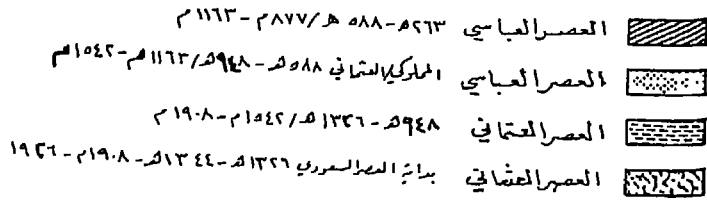 العصر العباسي ٢٦٣هـ - ٥٨٨ هـ/٨٧٧م - ١١٦٣ م
العصر العباسي المملوكي/العثماني ٥٨٨هـ - ٩٤٨هـ/١١٦٣م - ١٥٤٢م
العصر العثماني ٩٤٨هـ - ١٣٢٦هـ/١٥٤٢م - ١٩٠٨ م
العصر العثماني بداية العصر السعودي ١٣٢٦هـ - ١٣٤٤هـ - ١٩٠٨م - ١٩٢٦